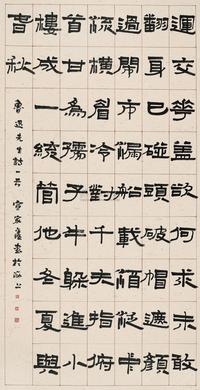 運交華盖欲何求未敢
翻身已碰頭破帽遮顏
過鬧市漏船載酒泛中
流橫眉冷對千夫指俯
首甘為孺子牛躲進小
樓成一統管他冬夏與
春秋
魯迅先生詩一首 書於海上